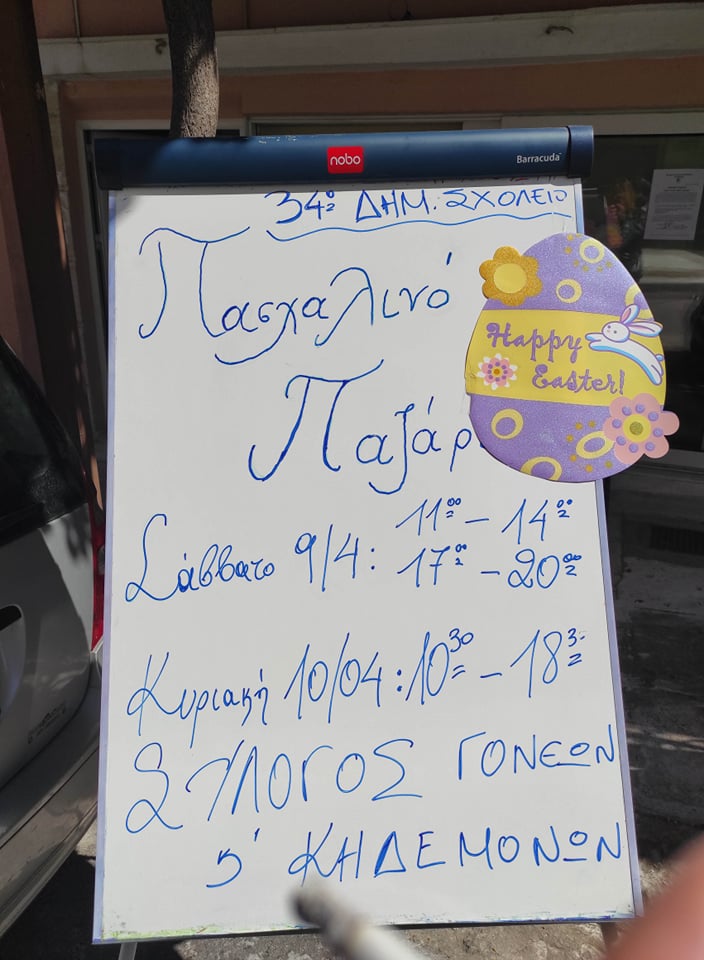 nobo
Barracuda
34º ΔΗΜ. ΣΧΟΛΕΙΟ
Πασχαλινό
Παζάρ
Happy
Easter!
Σάββατο 9/4: 11⁰⁰ – 14⁰⁰
17⁰⁰ – 20⁰⁰
Κυριακή 10/04: 10³⁰ – 18³⁻
ΣΥΛΛΟΓΟΣ ΓΟΝΕΩΝ
ϗ' ΚΗΔΕΜΟΝΩΝ